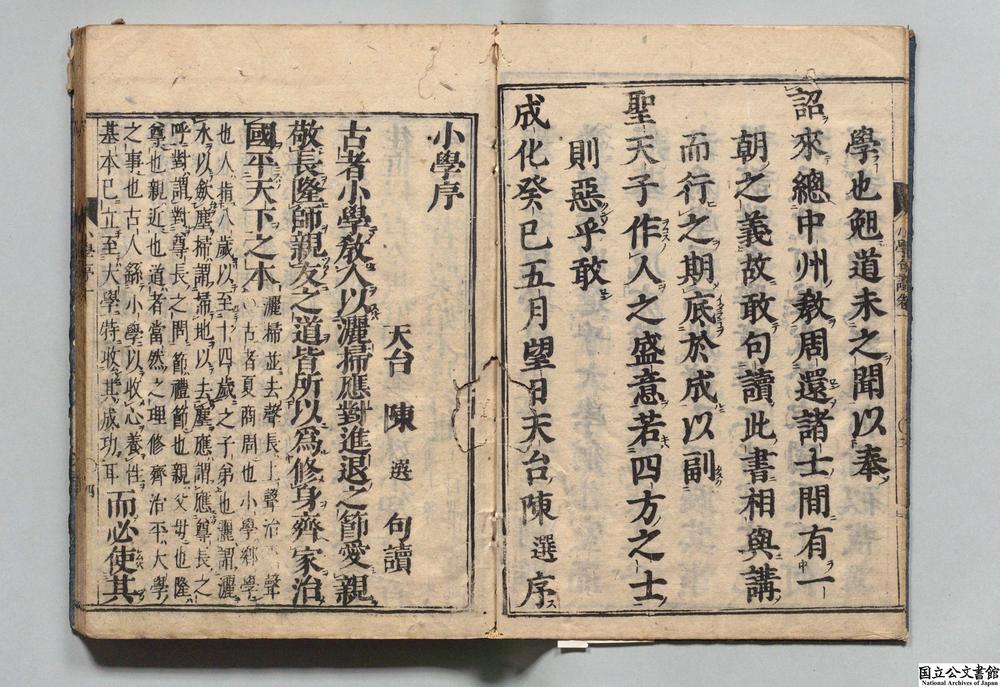 學也勉道未之聞以奉
詔來總中州敎周還諸士間有一
朝之義故敢句讀此書相與講
而行之期底於成以副
聖天子作人之盛意若四方之士
則惡乎敢
成化癸巳五月望日天台陳選序
小學序
天台 陳 選 句讀
古者小學敎人以灑掃應對進退之節愛親
敬長隆師親友之道皆所以爲修身齊家治
國平天下之本
灑掃並去聲長上聲治 聲
○古者夏商周也小學鄕學
也人指八歲以至十四歲之子弟也灑謂灑
水以斂塵掃謂掃地以去塵應謂應尊長之
呼對謂對尊長之問節禮節也親父母也隆
尊也親近也道者當然之理修齊治平大學
之事也古人繇小學以收心養性
基本已立至大學特收其成功耳
而必使其
國立公文書館
National Archives of Japan